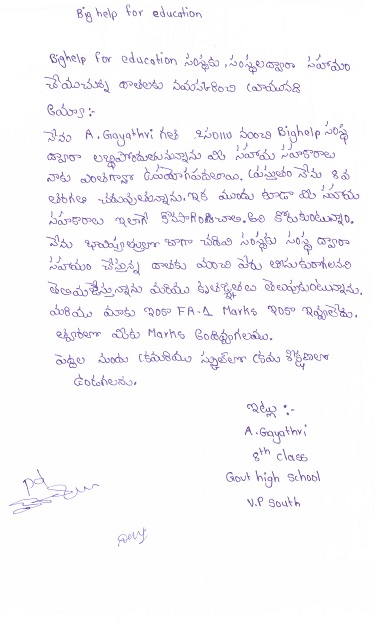 Big help for education
Bighelp for education సంస్థకు, సంస్థలద్వారా సహాయం
చేయుచున్న దాతలకు నమస్కరించి వ్రాయునది
ఆయ్యా :-
నేను A. Gayathri గత సం॥ నుంచి Bighelp సంస్థ
ద్వారా లబ్ధిపొందుతున్నాను మీ సహాయ సహకారాలు
నాకు ఎంతగానో ఉపయోగపడ్డాయి. ప్రస్తుతం నేను 8వ
తరగతి చదువుతున్నాను. ఇక ముందు కూడా మీ సహాయ
సహకారాలు ఇలాగే కొనసాగించాలి అని కోరుకుంటున్నాం.
నేను భవిష్యత్తులో బాగా చదివి సంస్థకు సంస్థ ద్వారా
సహాయం చేస్తున్న దాతకు మంచి పేరు తీసుకురాగలనని
తెలియజేస్తున్నాను మరియు కృతజ్ఞతలు తెలుపుకుంటున్నాను.
మరియు మాకు ఇంకా FA-1 Marks ఇంకా ఇవ్వలేదు.
త్వరలో మీకు Marks అందివ్వగలము.
పెద్దల నుండి స్కూల్‌లో క్రమ శిక్షణలో
ఉండగలను.
ఇట్లు :-
A. Gayathri
8th class
Govt high school
V.P South